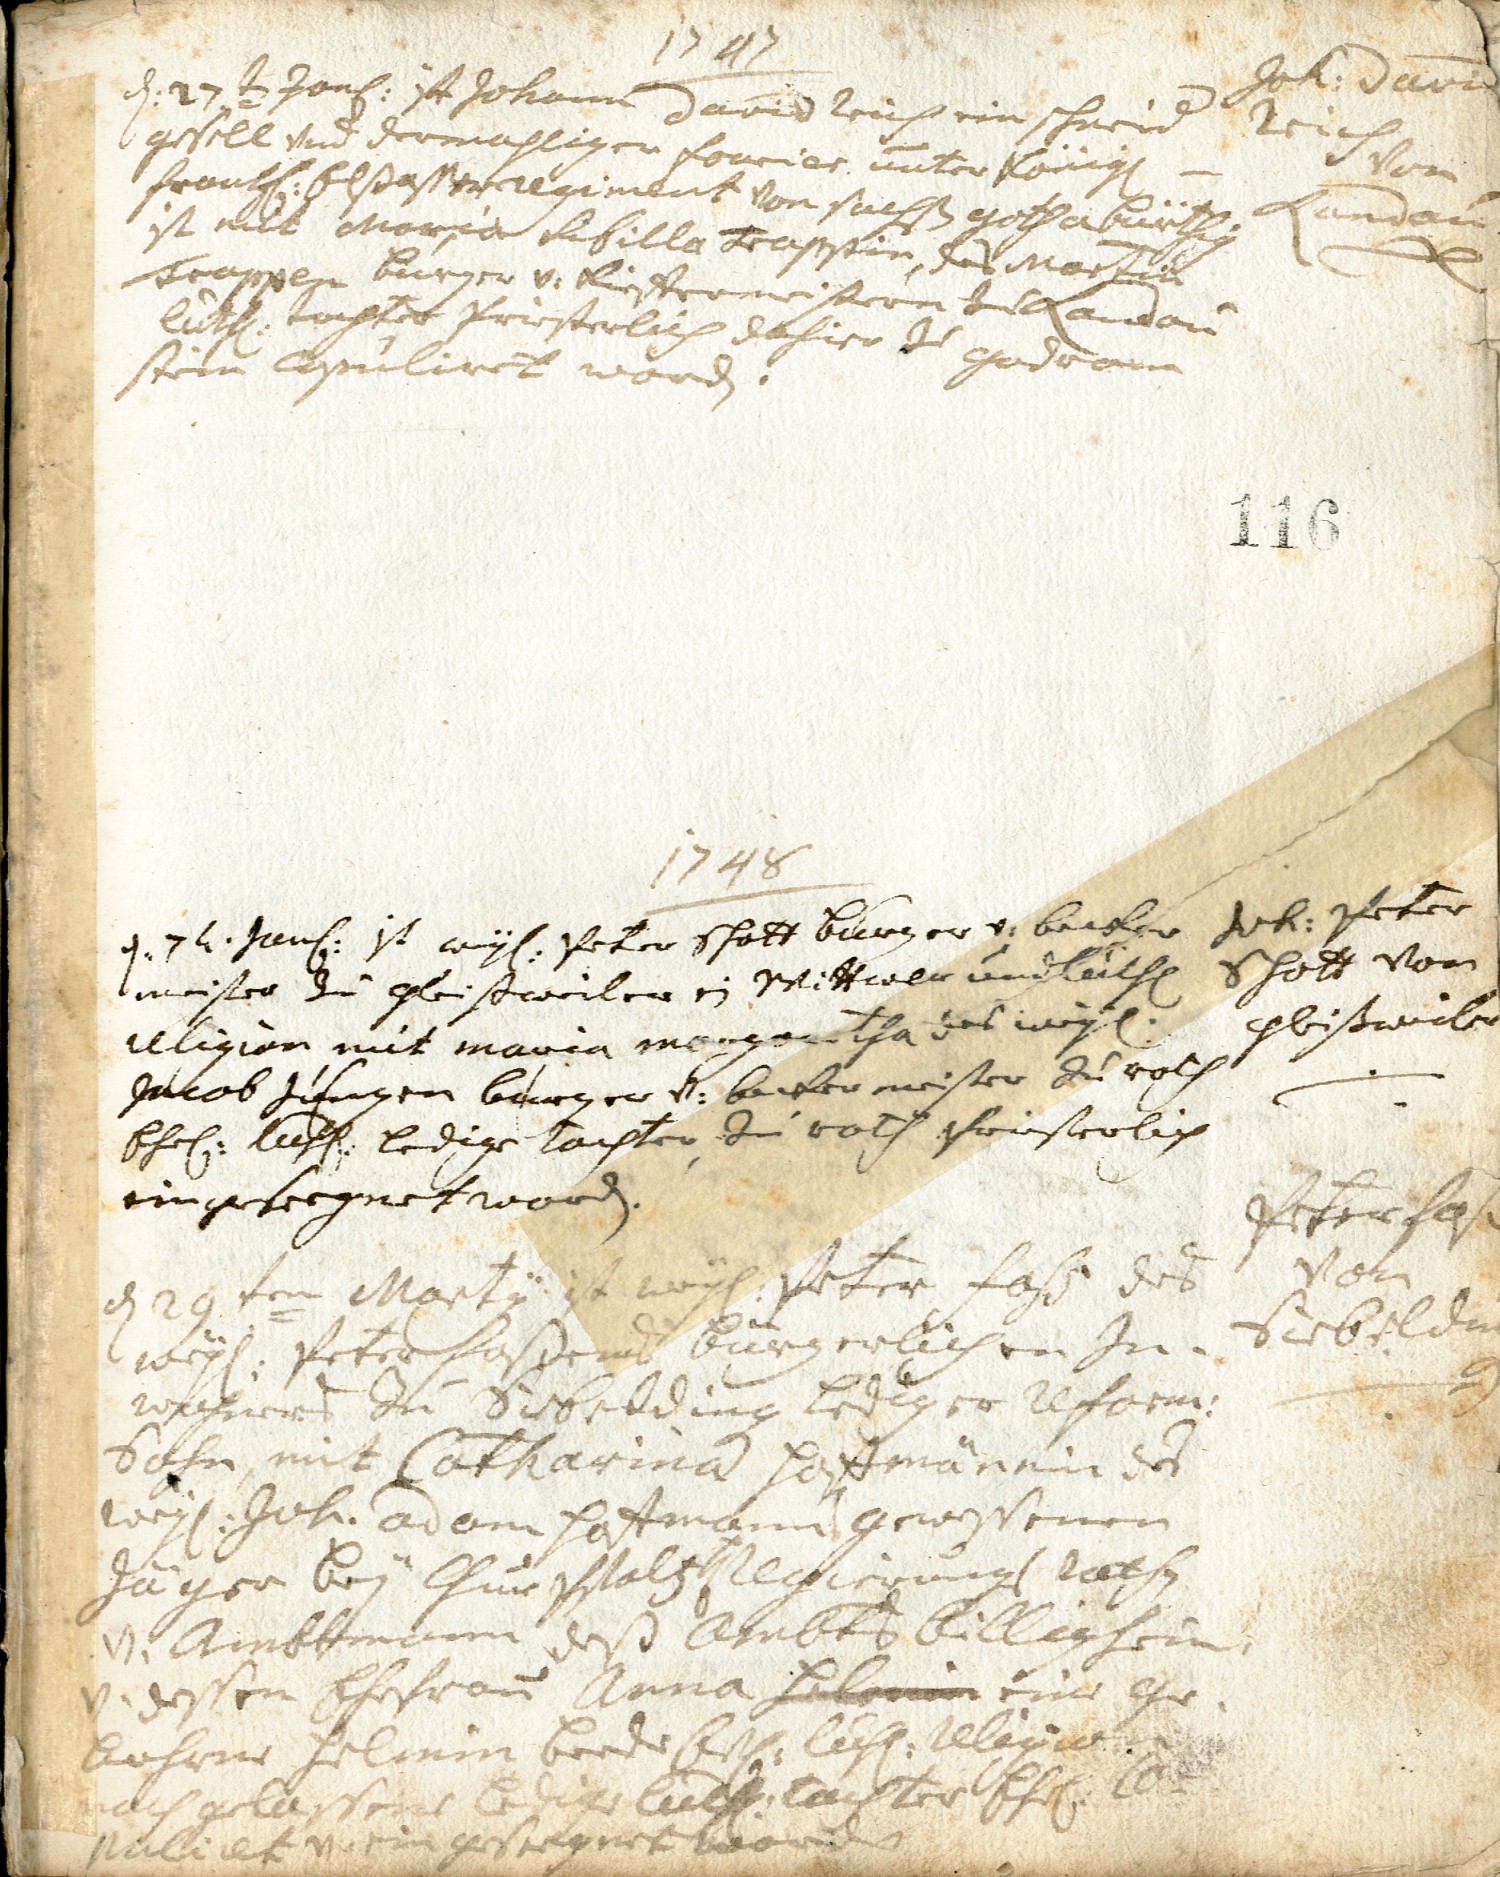 1747
d. 27t Janu: ist Johann David Reich ein schneid
gesell und dermahliger fourier unter Königl
frantz: Elsasser regiment von sachß gotha bürtig
ist mit Maria Sibilla Trappin, des Martin
Trappen burger v: Küffermeistern zu Landau
luth: tochter priesterlich dahier zu godram
stein copuliret word.
Joh: David
Reich
von
Landau
116
1748
d. 7t. Janu: ist weyl: Peter Schott burger v: becker
meister zu gleißweiler ein Wittwer und luth
religion mit maria margaretha des weyl.
Jacob burger v: becker meister zu roth
ehel: luth: ledige tochter, zu roth priesterlich
eingesegnet word.
Joh: Peter
Schott von
gleißweiler
d 29ten Marty ist weyl. Peter faß des
weyl: Peter faßens bürgerlichen In-
wohners zu Siebelding lediger reform:
Sohn, mit Catharina hoffmännin des
weyl: Joh. adam hoffmanns gewessenen
Jäger bey Chur Pfaltz Regierungs rath
v. Ambtmann deß Ambts billigheim
v. dessen Ehefrau Anna helmin eine ge-
bohrne helmin beede luth: religion
nachgelassene ledige luth: tochter ehel. co-
puliret v. eingesegnet word
Peter faß
von
Siebeldin